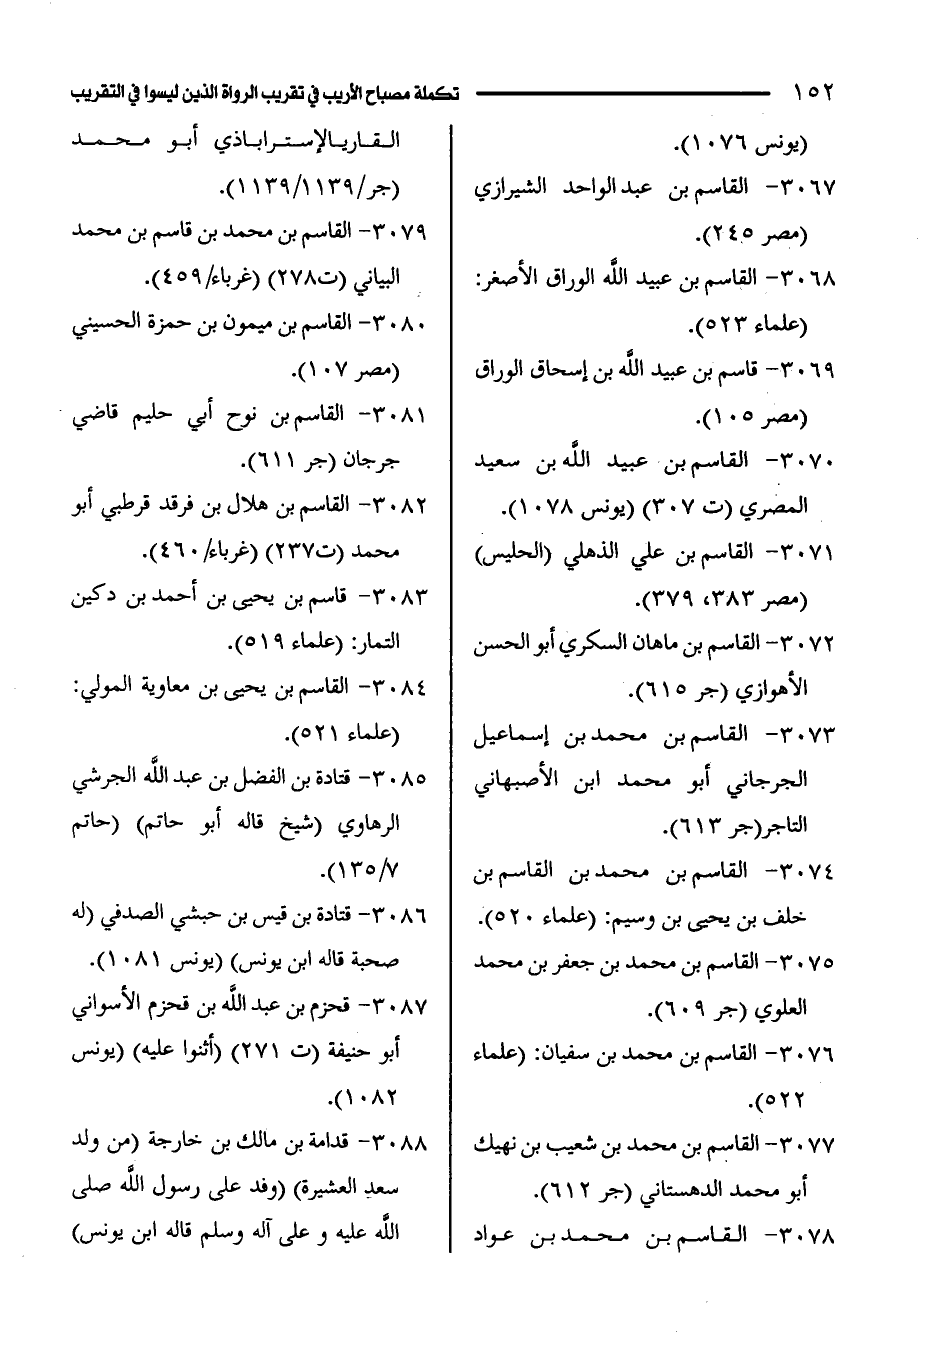 ١٥٢ تكملة مصباح الأريب في تقريب الرواة الذين ليسوا في التقريب
(يونس ١٠٧٦).
٣٠٦٧- القاسم بن عبد الواحد الشيرازي
(مصر ٢٤٥).
٣٠٦٨- القاسم بن عبيد اللَّه الوراق الأصغر:
(علماء ٥٢٣).
٣٠٦٩- قاسم بن عبيد اللَّه بن إسحاق الوراق
(مصر ١٠٥).
٣٠٧٠- القاسم بن عبيد اللَّه بن سعيد
المصري (ت ٣٠٧) (يونس ١٠٧٨).
٣٠٧١- القاسم بن علي الذهلي (الحليس)
(مصر ٣٨٣، ٣٧٩).
٣٠٧٢- القاسم بن ماهان السكري أبو الحسن
الأهوازي (جر ٦١٥).
٣٠٧٣- القاسم بن محمد بن إسماعيل
الجرجاني أبو محمد ابن الأصبهاني
التاجر(جر ٦١٣).
٣٠٧٤- القاسم بن محمد بن القاسم بن
خلف بن يحيى بن وسيم: (علماء ٥٢٠).
٣٠٧٥- القاسم بن محمد بن جعفر بن محمد
العلوي (جر ٦٠٩).
٣٠٧٦- القاسم بن محمد بن سفيان: (علماء
٥٢٢).
٣٠٧٧- القاسم بن محمد بن شعيب بن نهيك
أبو محمد الدهستاني (جر ٦١٢).
٣٠٧٨- القاسم بن محمد بن عواد
القاريالإستراباذي أبو محمد
(جر/١١٣٩/١١٣٩).
٣٠٧٩- القاسم بن محمد بن قاسم بن محمد
البياني (ت٢٧٨) (غرباء/٤٥٩).
٣٠٨٠- القاسم بن ميمون بن حمزة الحسيني
(مصر ١٠٧).
٣٠٨١- القاسم بن نوح أبي حليم قاضي
جرجان (جر ٦١١).
٣٠٨٢- القاسم بن هلال بن فرقد قرطبي أبو
محمد (ت٢٣٧) (غرباء/٤٦٠).
٣٠٨٣- قاسم بن يحيى بن أحمد بن دكين
التمار: (علماء ٥١٩).
٣٠٨٤- القاسم بن يحيى بن معاوية المولي:
(علماء ٥٢١).
٣٠٨٥- قتادة بن الفضل بن عبد اللَّه الجرشي
الرهاوي (شيخ قاله أبو حاتم) (حاتم
١٣٥/٧).
٣٠٨٦- قتادة بن قيس بن حبشي الصدفي (له
صحبة قاله ابن يونس) (يونس ١٠٨١).
٣٠٨٧- قحزم بن عبد اللَّه بن قحزم الأسواني
أبو حنيفة (ت ٢٧١) (أثنوا عليه) (يونس
١٠٨٢).
٣٠٨٨- قدامة بن مالك بن خارجة (من ولد
سعد العشيرة) (وفد على رسول اللَّه صلى
اللَّه عليه و على آله وسلم قاله ابن يونس)